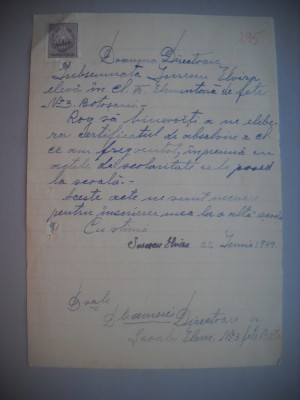 295
Doamna Directoare
Subsemnata Ionescu Elvira
elevă în cl. Elementară de fete
No 3. Botoșani.-
Rog să binevoiți a ne elibe-
ra certificatul de absolvire a cl.
ce am frequentat, împreună cu
actele de școlaritate ce le posed
la școală.-
Aceste acte ne sunt necesare
pentru înscrierea mea la o altă școală
Cu stimă
Ionescu Elvira 22 Iunie 1949.
Doamnei Directoare a
Școalei Elem. No 3 fete Bot